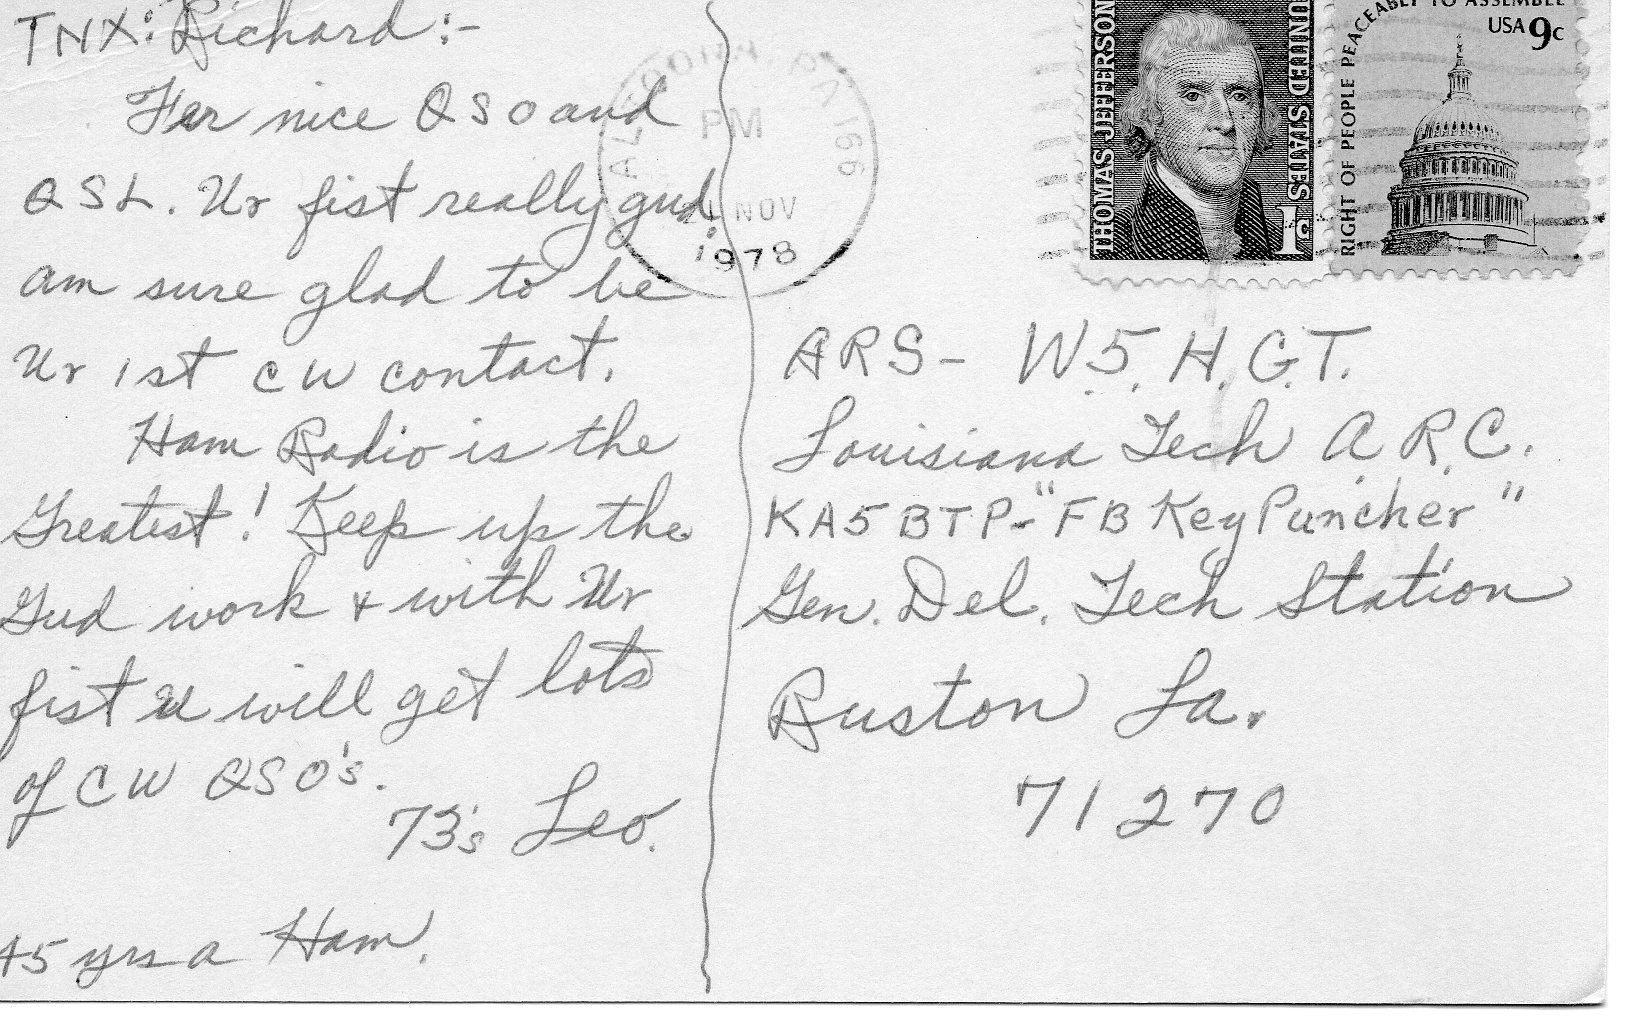 TNX: Richard:-
For nice QSO and
QSL. Ur fist really gud,
am sure glad to be
Ur 1st CW contact.
Ham Radio is the
Greatest! Keep up the
Gud work & with Ur
fist U will get lots
of CW QSO's.
73's Leo.
45 yrs a Ham.
PA 166
PM
NOV
1978
THOMAS JEFFERSON
UNITED STATES
1c
RIGHT OF PEOPLE PEACEABLY TO ASSEMBLE
USA 9c
ARS- W5.H.G.T.
Louisiana Tech A.R.C.
KA5BTP-"FB Key Puncher"
Gen. Del. Tech Station
Ruston La.
71270